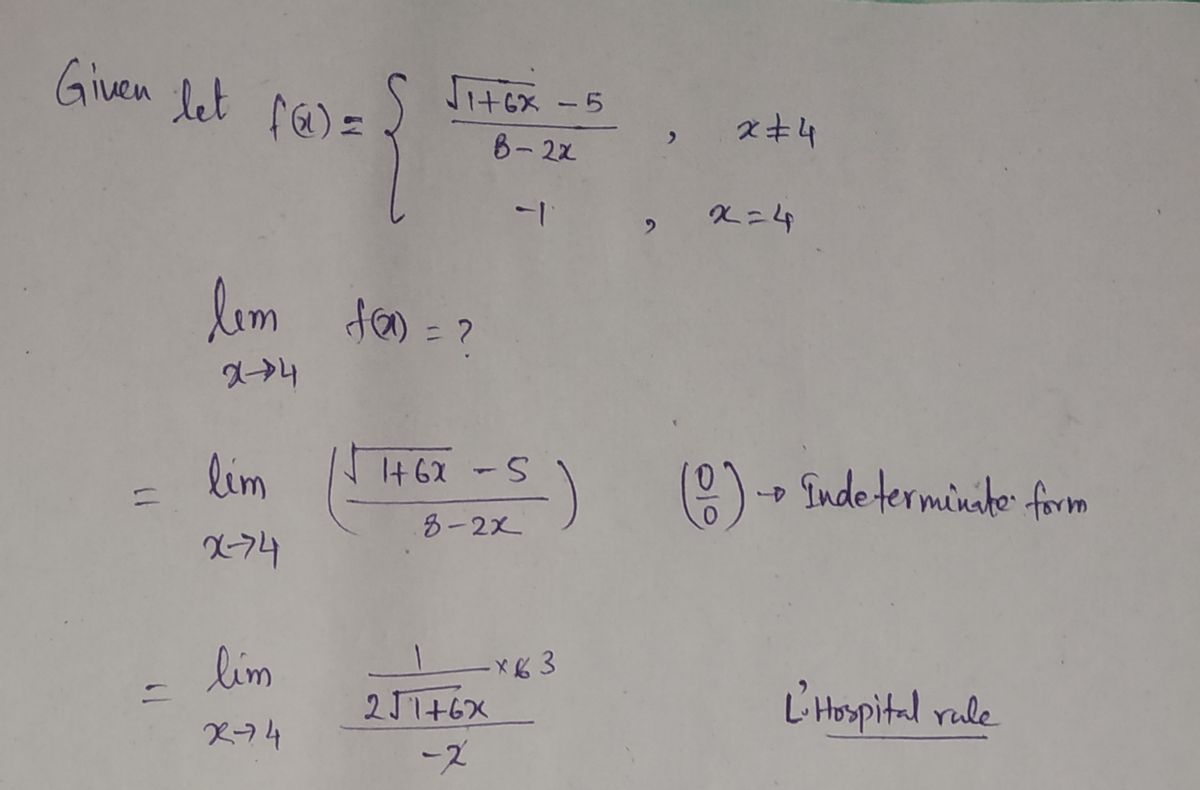 Given let f(x) = { (√1+6x - 5)/(8-2x) , x≠4
-1 , x=4
lim x→4 f(x) = ?
= lim x→4 ((√1+6x - 5)/(8-2x)) (0/0) → Indeterminate form
= lim x→4 (1/(2√1+6x) × 6 3)/(-2) L'Hospital rule